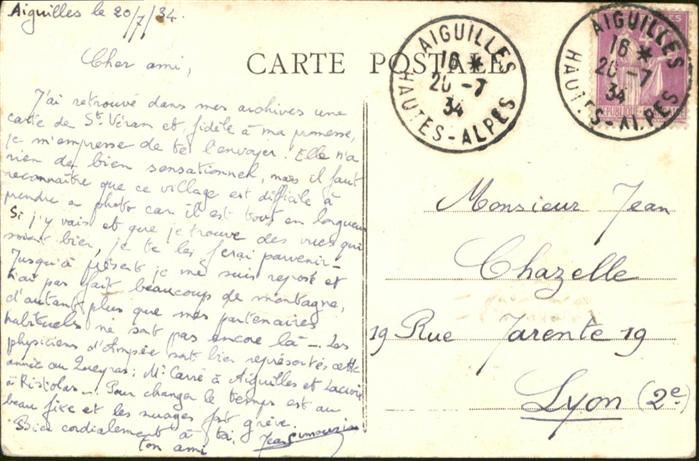 Aiguilles le 20/7/34.
Cher ami,
J'ai retrouvé dans mes archives une
carte de St Véran et fidèle à ma promesse,
je m'empresse de te l'envoyer. Elle n'a
rien de bien sensationnel, mais il faut
reconnaître que ce village est difficile à
prendre en photo car il est tout en longueur
Si j'y vais et que je trouve des vues qui
soient bien, je te les ferai parvenir -
Jusqu'à présent je me suis reposé et
n'ai pas fait beaucoup de montagne,
d'autant plus que mes partenaires
habituels ne sont pas encore là -. Les
physiciens d'Ampère sont bien représentés cette
année au Queyras: Mr Carré à Aiguilles et Lacroix
à Ristolas -. Pour changer le temps est au
beau fixe et les nuages font grève.
Bien cordialement à toi.
ton ami
Jean
CARTE POSTALE
AIGUILLES
16 *
20 -7
34
HAUTES-ALPES
AIGUILLES
16 *
20 -7
34
HAUTES-ALPES
Monsieur Jean
Chazelle
19 Rue Jarente 19
Lyon (2e)